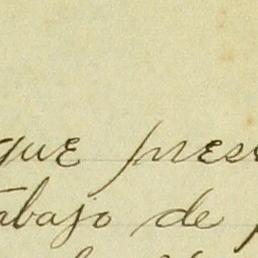 que pres
abajo de